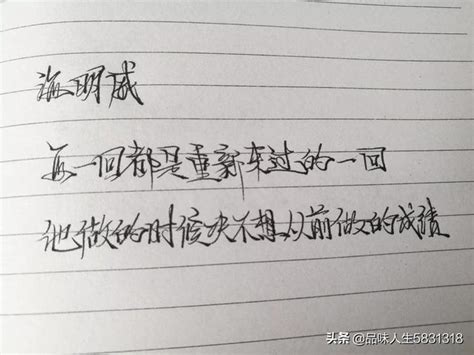 海明威
每一回都是重新来过的一回
他做的时候决不想从前做的成绩
头条 @品味人生5831318